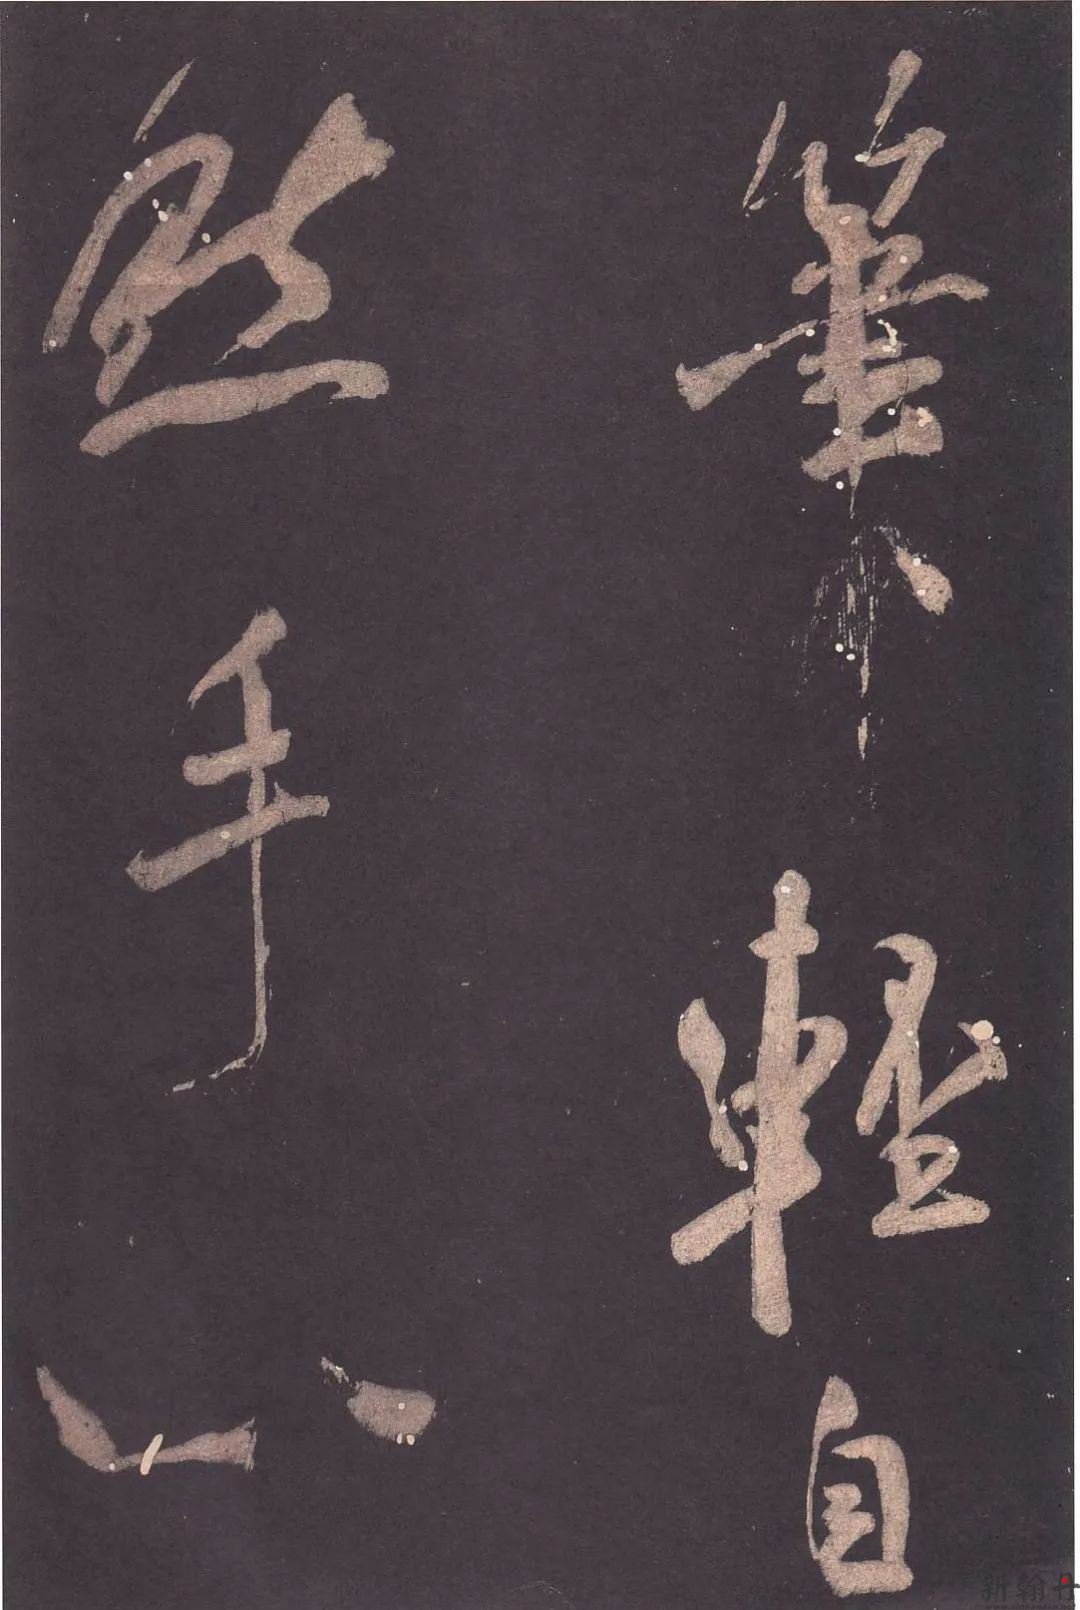 筆輕自
然手心
新翰丹